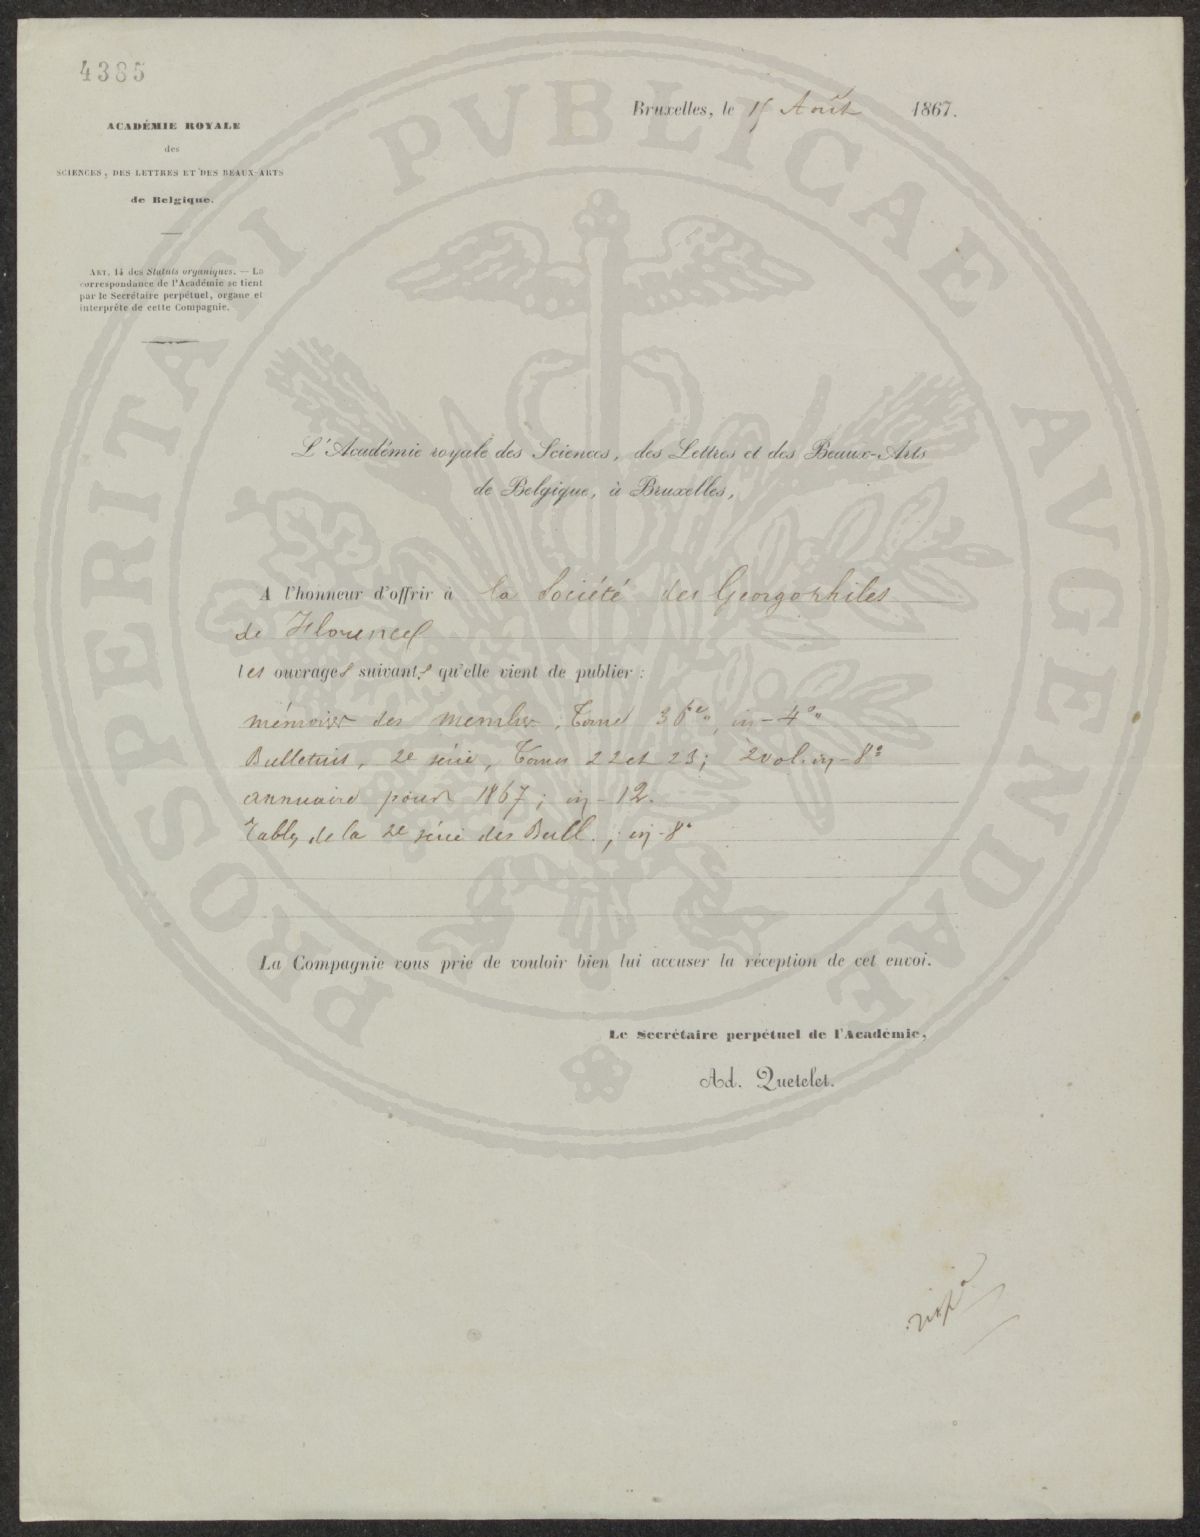 4385
Bruxelles, le 15 Août 1867.
ACADÉMIE ROYALE
des
SCIENCES, DES LETTRES ET DES BEAUX-ARTS
de Belgique.
ART. 14 des Statuts organiques. — La
correspondance de l'Académie se tient
par le Secrétaire perpétuel, organe et
interprète de cette Compagnie.
L'Académie royale des Sciences, des Lettres et des Beaux-Arts
de Belgique, à Bruxelles,
A l'honneur d'offrir à la Société des Georgophiles
de Florence
les ouvrages suivants qu'elle vient de publier :
mémoires des membres, Tome 36e, in-4°
Bulletins, 2e série, Tomes 22 et 23; 2 vol. in-8°
annuaire pour 1867; in-12.
Tables de la 2e série des Bull.; in-8°
La Compagnie vous prie de vouloir bien lui accuser la réception de cet envoi.
Le Secrétaire perpétuel de l'Académie,
Ad. Quetelet.
PROSPERITATI PVBLICAE AVGENDAE